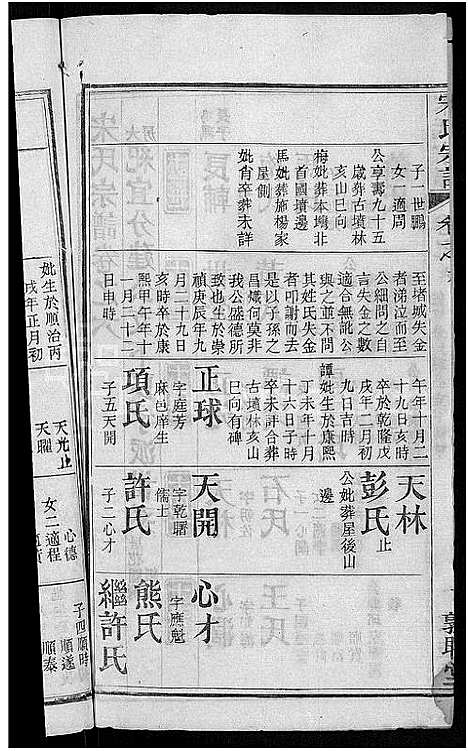 宋氏宗譜
子一世鵬
女一適周
公享壽九十五
歲葬古墳林
亥山巳向
梅妣葬本塆北
首國墳邊
馬妣葬施楊家
屋側
妣肖卒葬未詳
至堵城失金
者涕泣而至
公細問之自
言失金之數
適合無訛公
與之並不問
其姓氏失金
者叩謝而去
是以子孫之
昌熾何莫非
我公盛德所
致也生於崇
禎庚辰年九
月二十九日
時卒於康
熙甲午年十
一月二十二
日申時
午年十月二
十九日亥時
卒於乾隆戊
戌年二月初
九日吉時
譚妣生於康熙
丁未年十月
十六日子時
卒未詳合葬
古墳林亥山
巳向有碑
正球
字庭芳
麻邑庠生
項氏
子五天開
天林
止
彭氏
公妣葬屋後山
邊
天開
字乾曙
儒士
許氏
子二心才
心才
字應魁
熊氏
繼許氏
敦睦堂
妣生於順治丙
戌年正月初
天光止
天曜
女二適程
心德
子四順時
順遂
順泰